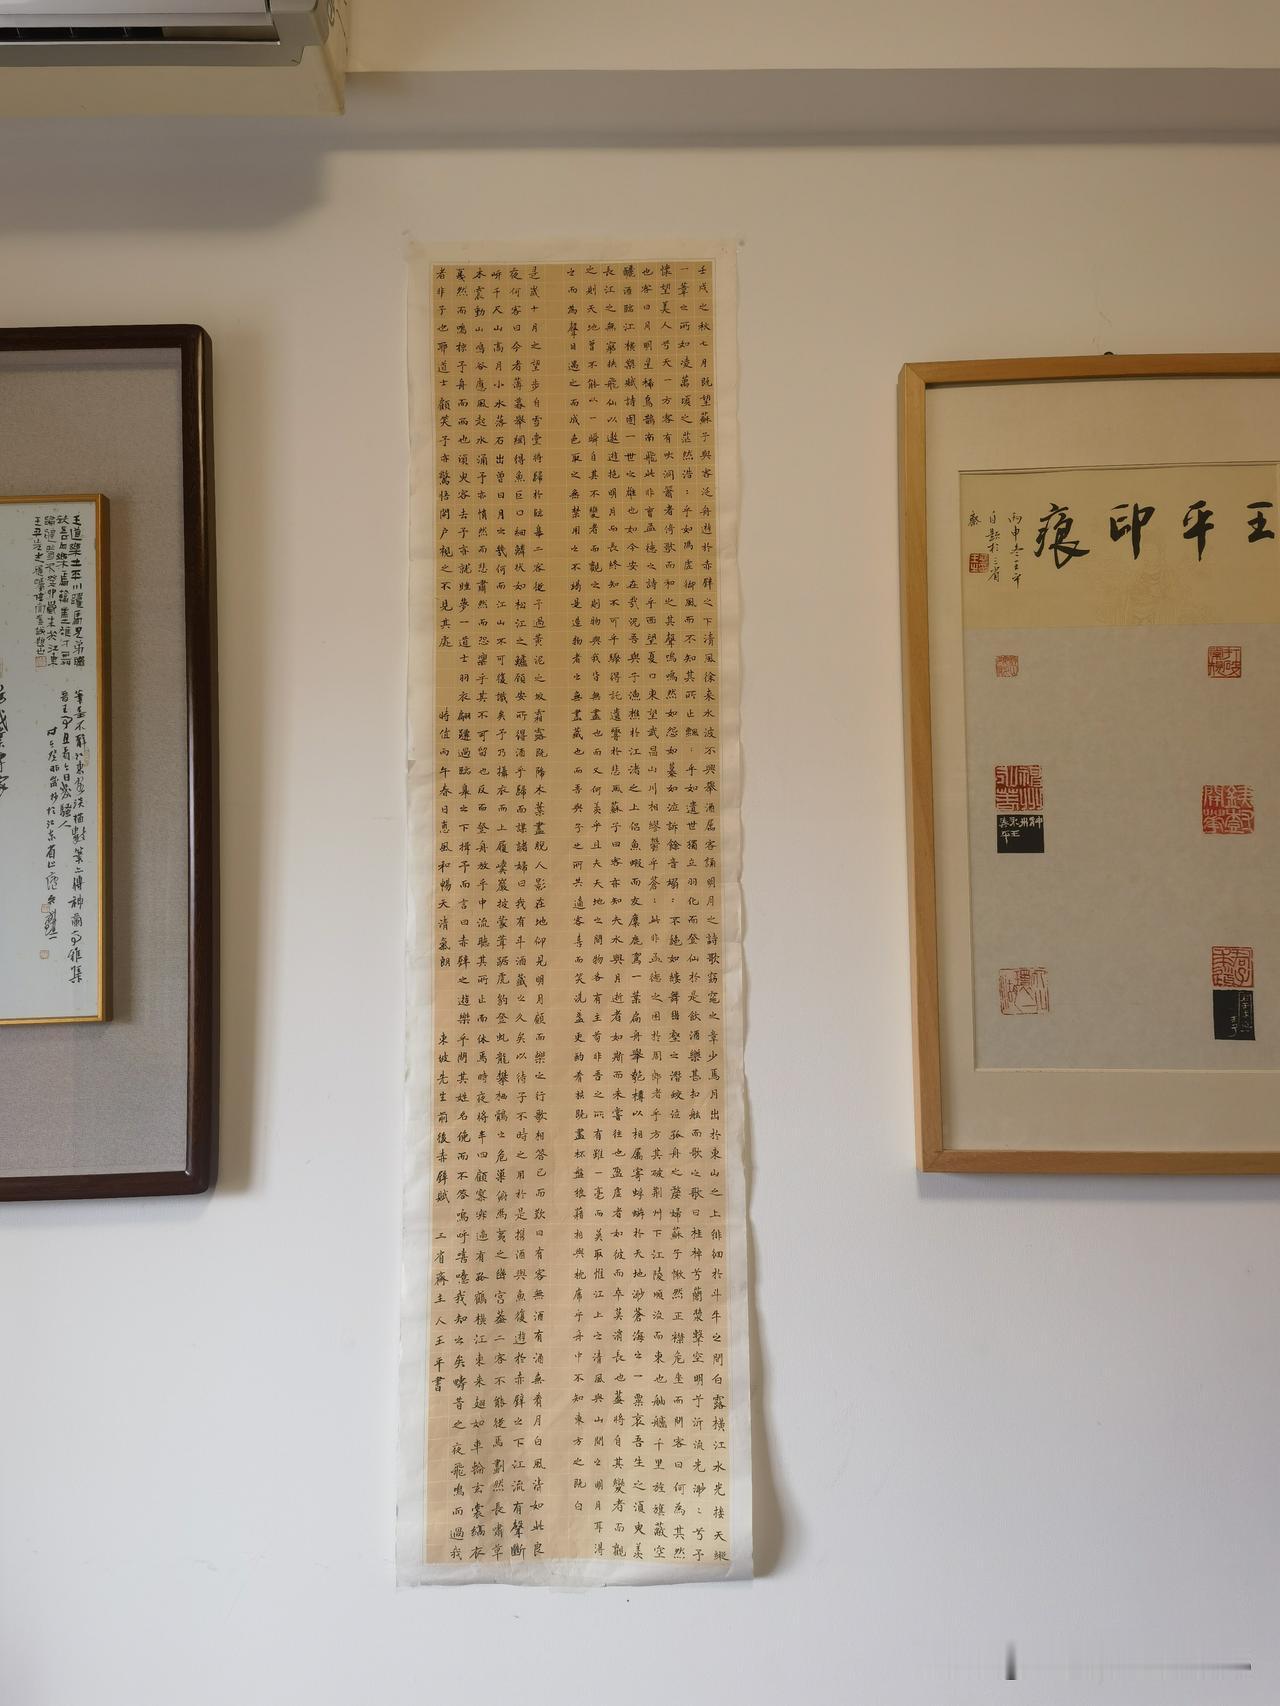 壬戌之秋七月既望蘇子與客泛舟遊於赤壁之下清風徐来水波不興舉酒属客誦明月之詩歌窈窕之章少焉月出於東山之上徘徊於斗牛之間白露横江水光接天縱
一葦之所如凌萬頃之茫然浩:乎如馮虚御風而不知其所止飄:乎如遺世獨立羽化而登仙於是飲酒樂甚扣舷而歌之歌曰桂棹兮蘭槳擊空明兮泝流光渺:兮予
懷望美人兮天一方客有吹洞簫者倚歌而和之其聲嗚嗚然如怨如慕如泣訴餘音嫋:不絶如縷舞幽壑之潛蛟泣孤舟之嫠婦蘇子愀然正襟危坐而問客曰何為其然
也客曰月明星稀烏鵲南飛此非曹孟德之詩乎西望夏口東望武昌山川相繆鬱乎蒼:此非孟德之困於周郎者乎方其破荆州下江陵順流而東也舳艫千里旌旗蔽空
釃酒臨江横槊賦詩固一世之雄也如今安在哉況吾與子漁樵於江渚之上侣魚蝦而友麋鹿駕一葉扁舟舉匏樽以相属寄蜉蝣於天地渺蒼海之一粟哀吾生之須臾羡
長江之無窮挾飛仙以遨遊抱明月而長終知不可乎驟得託遺響於悲風蘇子曰客亦知夫水與月逝者如斯而未嘗往也盈虚者如彼而卒莫消長也蓋將自其變者而觀
之則天地曾不能以一瞬自其不變者而觀之則物與我皆無盡也而又何羡乎且夫天地之間物各有主苟非吾之所有雖一毫而莫取惟江上之清風與山間之明月耳得
之而為聲目遇之而成色取之無禁用之不竭是造物者之無盡藏也而吾與子之所共適客喜而笑洗盞更酌肴核既盡杯盤狼藉相與枕席乎舟中不知東方之既白
是歲十月之望步自雪堂將歸於臨皋二客從予過黄泥之坂霜露既降木葉盡脱人影在地仰見明月顧而樂之行歌相答已而歎曰有客無酒有酒無肴月白風清如此良
夜何客曰今者薄暮舉網得魚巨口細鱗状如松江之鱸顧安所得酒乎歸而謀諸婦曰我有斗酒藏之久矣以待子不時之用於是携酒與魚復遊於赤壁之下江流有聲斷
岸千尺山高月小水落石出曾日月之幾何而江山不可復識矣予乃攝衣而上履巉巖披蒙茸踞虎豹登虬龍攀栖鶻之危巢俯馮夷之幽宫蓋二客不能從焉劃然長嘯草
木震動山鳴谷應風起水涌予亦悄然而悲肅然而恐凛乎其不可留也反而登舟放乎中流聽其所止而休焉時夜將半四顧寂寥適有孤鶴横江東来翅如車輪玄裳縞衣
戛然而鳴掠予舟而西也須臾客去予亦就睡夢一道士羽衣翩躚過臨皋之下揖予而言曰赤壁之遊樂乎問其姓名俛而不答嗚呼噫嘻我知之矣疇昔之夜飛鳴而過我
者非子也耶道士顧笑予亦驚悟開户視之不見其處 時值丙午春日惠風和暢天清氣朗 東坡先生前後赤壁賦 三省齋主人王平書
王平印痕
丙申冬王平
自題於三省
齋